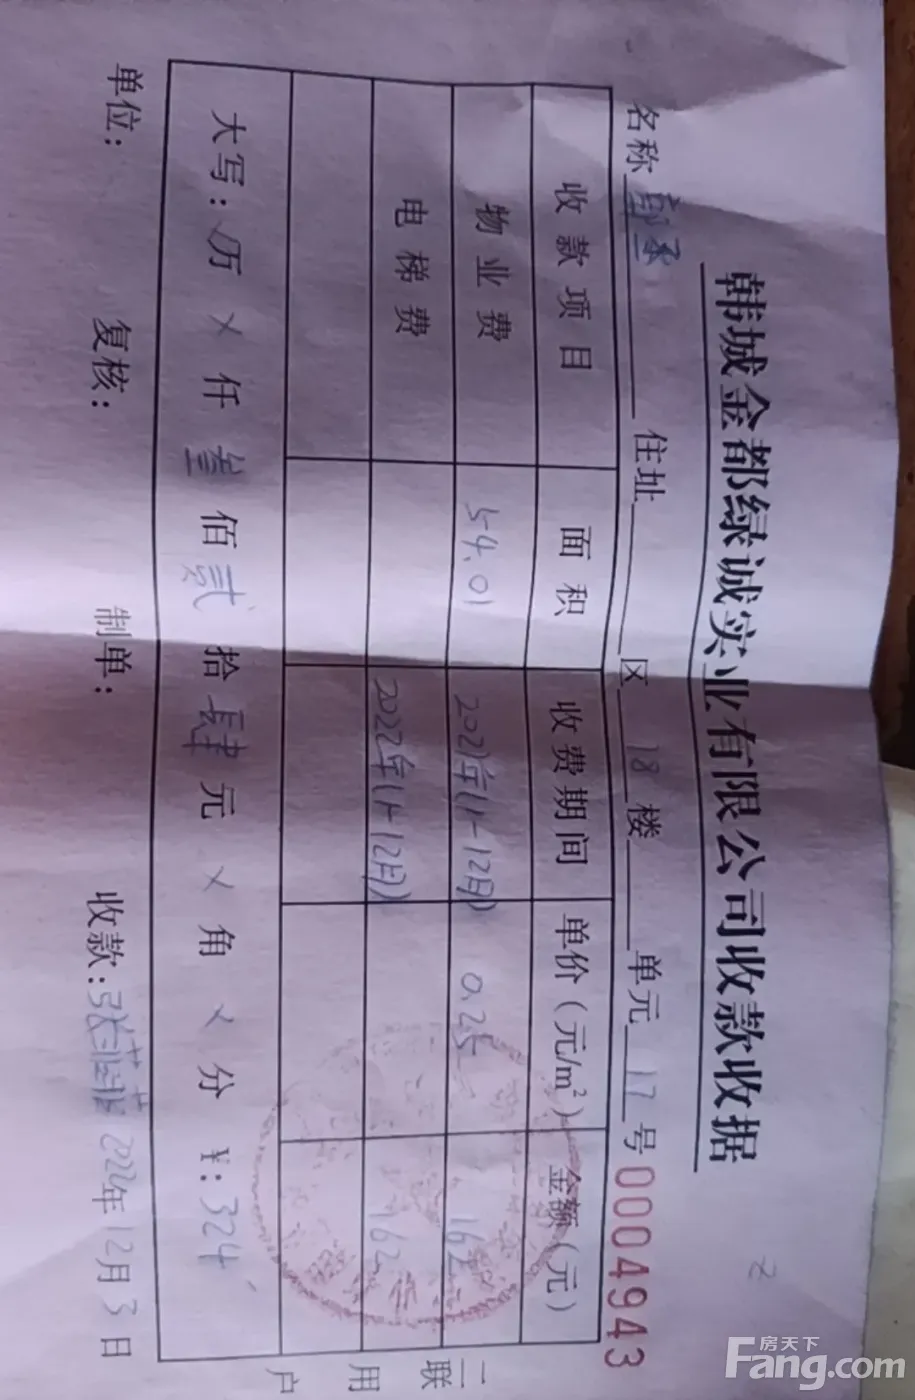 韩城金都绿诚实业有限公司收款收据
名称 住址 区 18 楼 单元 17 号 0004943
收款项目 面积 收费期间 单价（元/m²） 金额（元）
物业费 54.01 2022年(1-12月) 0.25 162
电梯费 2022年(1-12月) 162
大写： 万 × 仟 叁 佰 贰 拾 肆 元 × 角 × 分 ¥：324
单位： 复核： 制单： 收款： 2022年12月3日
二联
用
户
房天下
Fang.com